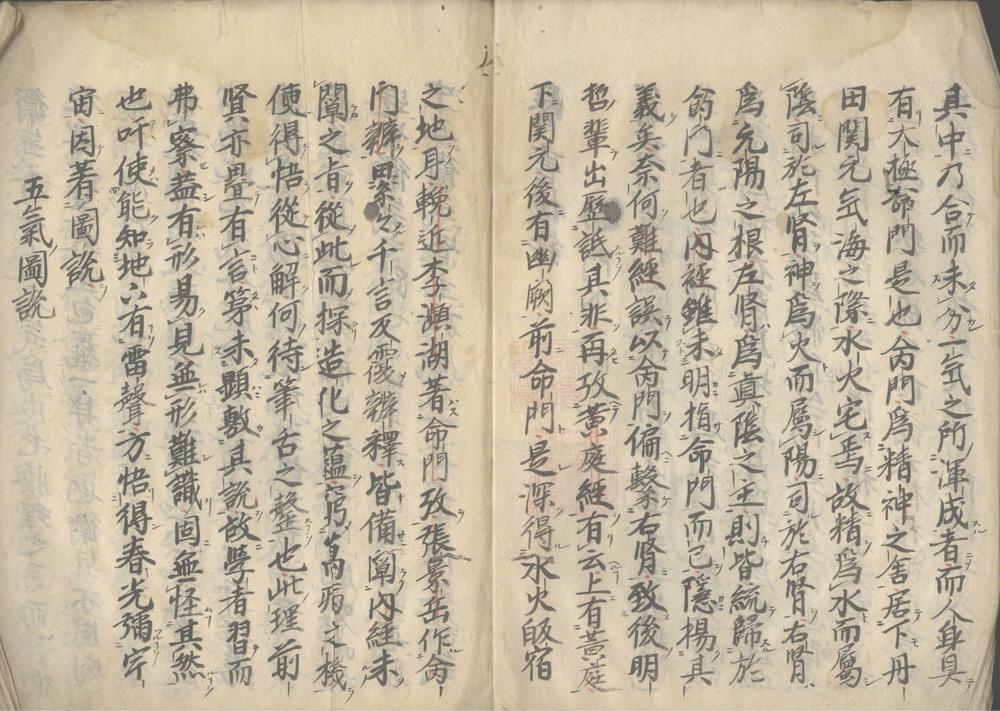 其中乃合而未分一氣之所渾成者而人身具
有大極命門是也命門爲精神之舍居下丹
田関元気海之際水火宅焉故精爲水而屬
陰司於左腎神爲火而屬陽司於右腎右腎
爲元陽之根左腎爲真陰之主則皆統歸於
命門者也内経雖未明指命門而已隱揚其
義矣奈何難經誤以命門偏繫右腎致後明
哲輩出歷詆其非再攷黃庭經有云上有黃庭
下関元後有幽闕前命門是深得水火皈宿
之地月輓近李瀕湖著命門攷張景岳作命
門辨累々千言反覆辨釋皆備闡内経未
闡之旨從此而探造化之蘊窮萬病之機
使得悟從心解何待筆古之聱也此理前
賢亦疊有言第未顯敷其說故學者習而
弗察蓋有形易見無形難識固無怪其然
也吁使能知地六有雷聲方悟得春光彌宇
宙因著圖説
五氣圖説